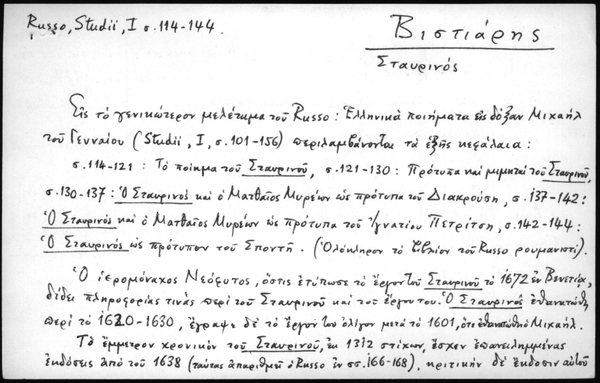 Russo, Studii, I σ.114-144.
Βιστιάρης
Σταυρινός
Εἰς τὸ γενικώτερον μελέτημα τοῦ Russo: Ἑλληνικὰ ποιήματα εἰς δόξαν Μιχαὴλ
τοῦ Γενναίου (Studii, I, σ.101-156) περιλαμβάνονται τὰ ἑξῆς κεφάλαια:
σ.114-121: Τὸ ποίημα τοῦ Σταυρινοῦ, σ.121-130: Πρότυπα καὶ μιμηταὶ τοῦ Σταυρινοῦ,
σ.130-137: Ὁ Σταυρινὸς καὶ ὁ Ματθαῖος Μυρέων ὡς πρότυπα τοῦ Διακρούση, σ.137-142:
Ὁ Σταυρινὸς καὶ ὁ Ματθαῖος Μυρέων ὡς πρότυπα τοῦ Ἰγνατίου Πετρίτση, σ.142-144:
Ὁ Σταυρινὸς ὡς πρότυπον τοῦ Σποντῆ. (Ὁλόκληρον τὸ βιβλίον τοῦ Russo ρουμανιστί).
Ὁ ἱερομόναχος Νεόφυτος, ὅστις ἐτύπωσε τὸ ἔργον τοῦ Σταυρινοῦ τὸ 1672 ἐν Βενετίᾳ,
δίδει πληροφορίας τινὰς περὶ τοῦ Σταυρινοῦ καὶ τοῦ ἔργου του. Ὁ Σταυρινὸς ἐθανατώθη
περὶ τὸ 1620-1630, ἔγραψε δὲ τὸ ἔργον του ὀλίγον μετὰ τὸ 1601, ὅτε ἐθανατώθη ὁ Μιχαήλ.
Τὸ ἔμμετρον χρονικὸν τοῦ Σταυρινοῦ, ἐν 1312 στίχων, ἔσχεν ἐπανειλημμένας
ἐκδόσεις ἀπὸ τοῦ 1638 (ταύτας ἀπαριθμεῖ ὁ Russo ἐν σσ.166-168), κριτικὴν δὲ ἔκδοσιν αὐτοῦ